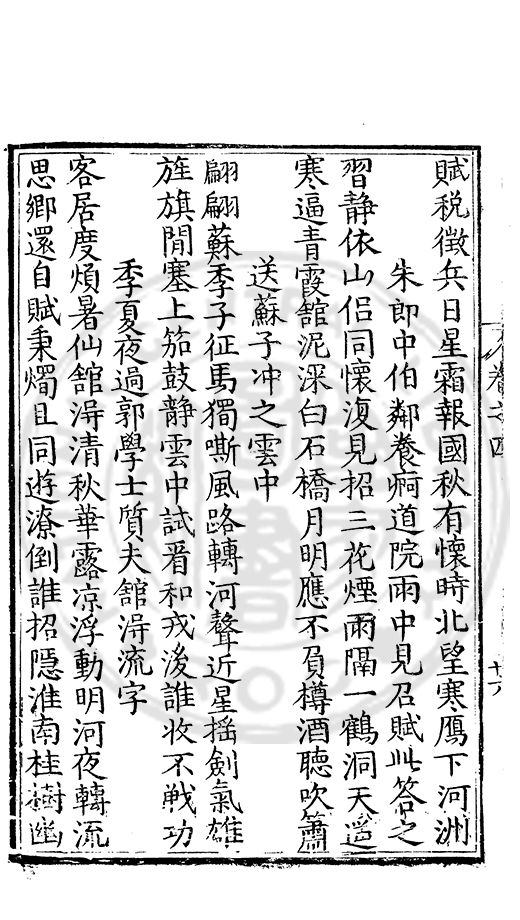 賦税徵兵日星霜報國秋有懷時北望寒鴈下河洲
朱郎中伯鄰養痾道院雨中見召賦此答之
習静依山侣同懷復見招三花煙雨隔一鶴洞天遥
寒逼青霞舘泥深白石橋月明應不負樽酒聴吹簫
送蘇子冲之雲中
翩翩蘇季子征馬獨嘶風路轉河聲近星揺劍氣雄
旌旗閒塞上笳鼓静雲中試看和戎後誰收不戦功
季夏夜過郭學士質夫舘淂流字
客居度煩暑仙舘淂清秋華露凉浮動明河夜轉流
思鄉還自賦秉燭且同遊潦倒誰招隱淮南桂樹幽
卷之四
十六